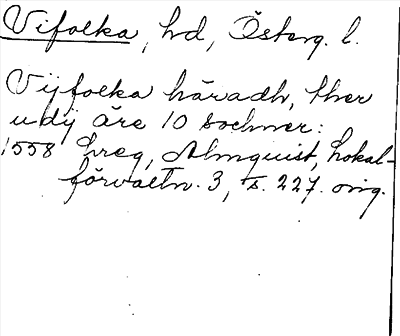 Vifolka, hd, Österg. l.
Vijfolka häradh, ther
udÿ äre 10 sochner:
1558 hreg, Almquist, Lokal-
förvaltn. 3, s. 227. orig.